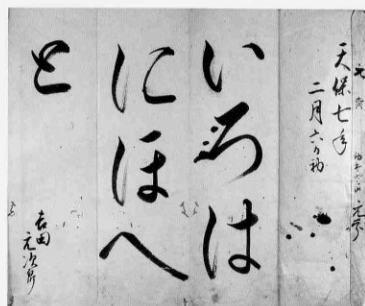 天保七年
二月六日初
いろは
にほへ
と
吉田
元次郎